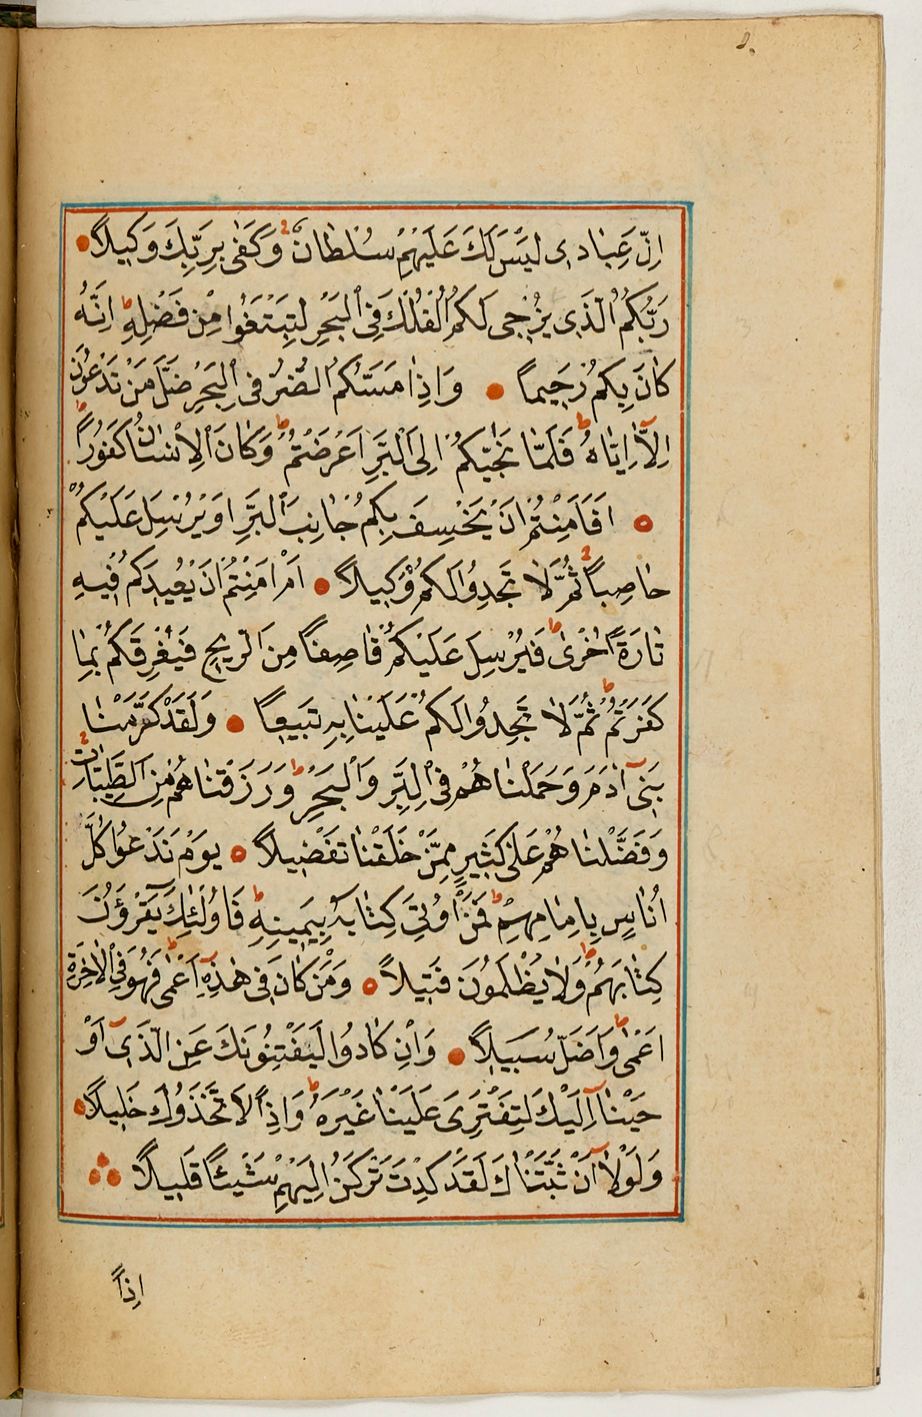 اِنَّ عِبَادِى لَيْسَ لَكَ عَلَيْهِمْ سُلْطَانٌ وَكَفٰى بِرَبِّكَ وَكِيلاً
رَبُّكُمُ الَّذِى يُزْجِى لَكُمُ الْفُلْكَ فِى الْبَحْرِ لِتَبْتَغُوا مِنْ فَضْلِهٖ اِنَّهُ
كَانَ بِكُمْ رَحِيماً وَاِذَا مَسَّكُمُ الضُّرُّ فِى الْبَحْرِ ضَلَّ مَنْ تَدْعُونَ
اِلَّا اِيَّاهُ فَلَمَّا نَجّٰيكُمْ اِلَى الْبَرِّ اَعْرَضْتُمْ وَكَانَ الْاِنْسَانُ كَفُوراً
اَفَاَمِنْتُمْ اَنْ يَخْسِفَ بِكُمْ جَانِبَ الْبَرِّ اَوْ يُرْسِلَ عَلَيْكُمْ
حَاصِباً ثُمَّ لَا تَجِدُوا لَكُمْ وَكِيلاً اَمْ اَمِنْتُمْ اَنْ يُعِيدَكُمْ فِيهِ
تَارَةً اُخْرٰى فَيُرْسِلَ عَلَيْكُمْ قَاصِفاً مِنَ الرِّيحِ فَيُغْرِقَكُمْ بِمَا
كَفَرْتُمْ ثُمَّ لَا تَجِدُوا لَكُمْ عَلَيْنَا بِهِ تَبِيعاً وَلَقَدْ كَرَّمْنَا
بَنِى اٰدَمَ وَحَمَلْنَاهُمْ فِى الْبَرِّ وَالْبَحْرِ وَرَزَقْنَاهُمْ مِنَ الطَّيِّبَاتِ
وَفَضَّلْنَاهُمْ عَلٰى كَثِيرٍ مِمَّنْ خَلَقْنَا تَفْضِيلاً يَوْمَ نَدْعُوا كُلَّ
اُنَاسٍ بِاِمَامِهِمْ فَمَنْ اُوتِىَ كِتَابَهُ بِيَمِينِهٖ فَاُولٰئِكَ يَقْرَؤُنَ
كِتَابَهُمْ وَلَا يُظْلَمُونَ فَتِيلاً وَمَنْ كَانَ فِى هٰذِهٖ اَعْمٰى فَهُوَ فِى الْاٰخِرَةِ
اَعْمٰى وَاَضَلُّ سَبِيلاً وَاِنْ كَادُوا لَيَفْتِنُونَكَ عَنِ الَّذِى اَوْ
حَيْنَا اِلَيْكَ لِتَفْتَرِىَ عَلَيْنَا غَيْرَهُ وَاِذاً لَاتَّخَذُوكَ خَلِيلاً
وَلَوْلَا اَنْ ثَبَّتْنَاكَ لَقَدْ كِدْتَ تَرْكَنُ اِلَيْهِمْ شَيْئاً قَلِيلاً
اِذاً